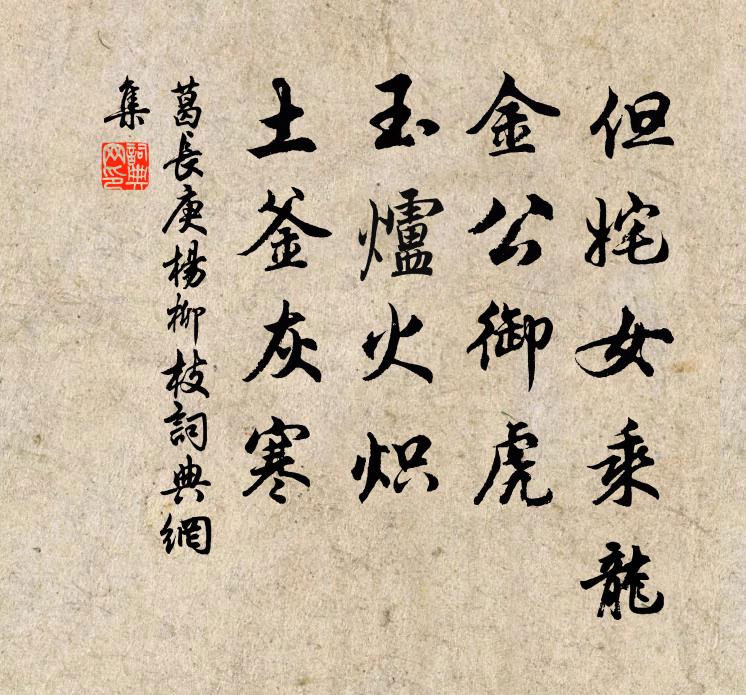 但姹女乘龍
金公御虎
玉爐火炽
土釜灰寒
葛長庚楊柳枝詞典網
集
詞典
网印